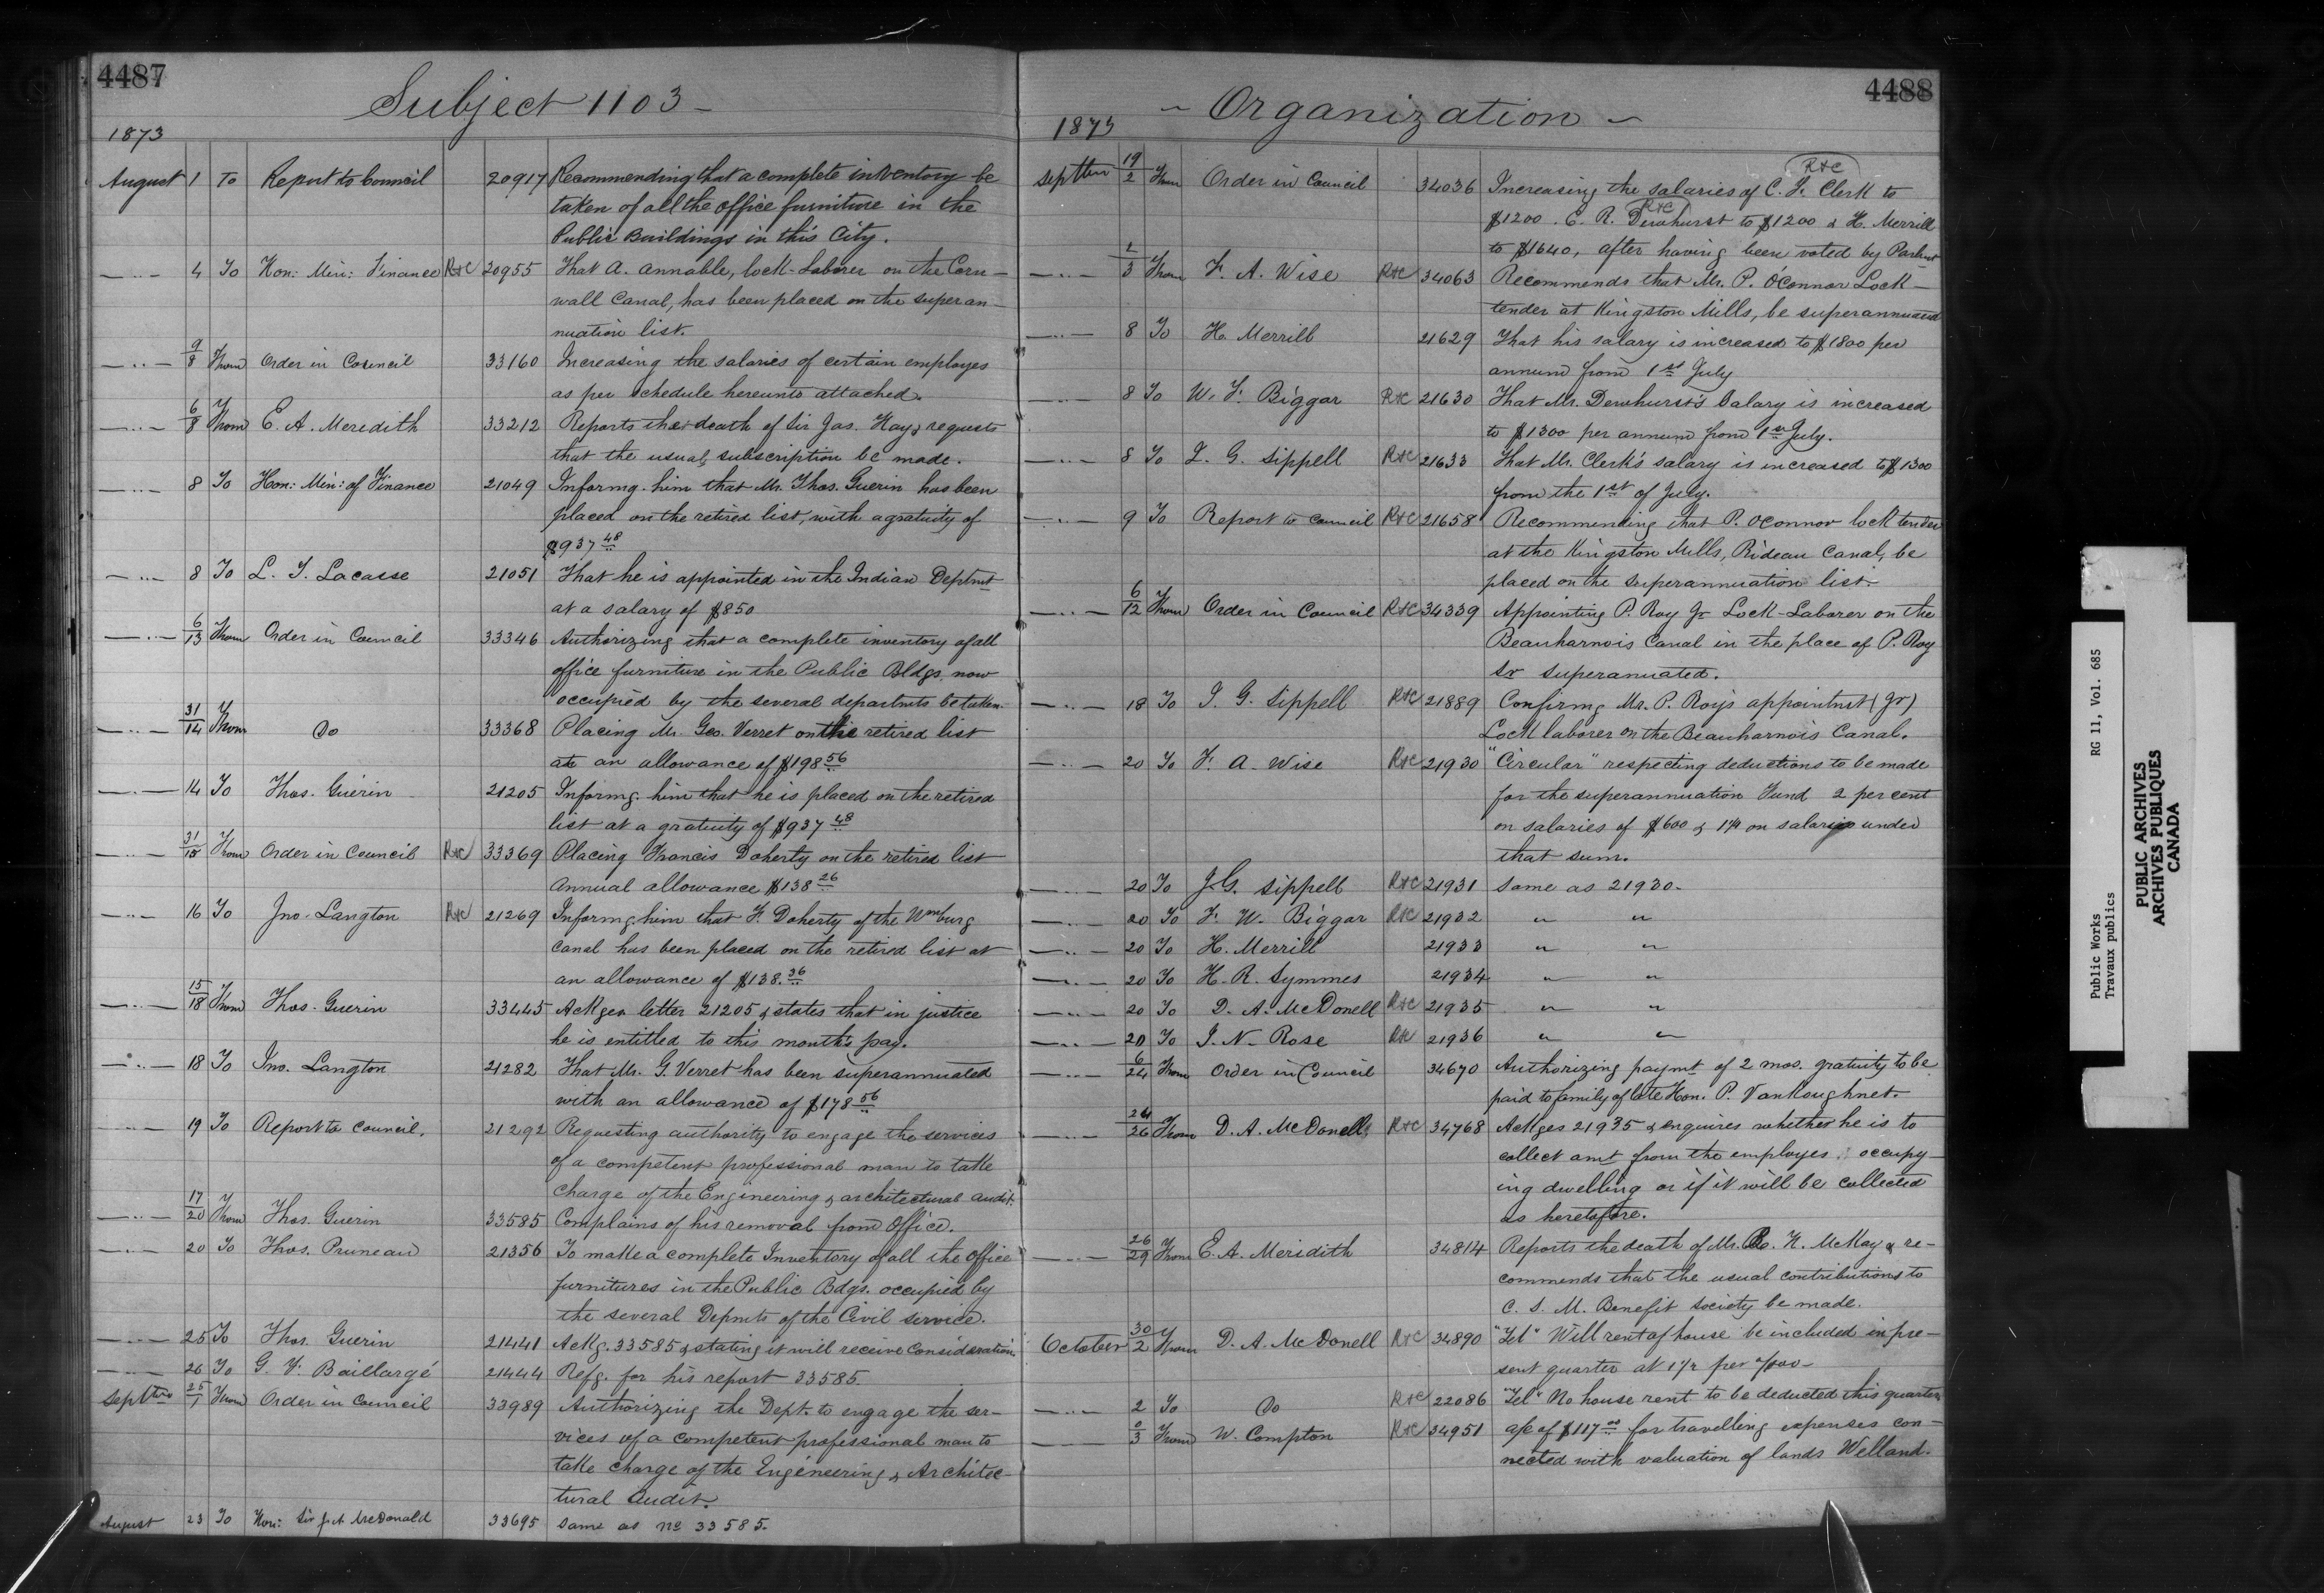 4487
Subject 1103
1873
August 1 To Report to Council 20917 Recommending that a complete inventory be
taken of all the office furniture in the
Public Buildings in this City.
4 To Hon: Min: Finance R&C 20955 That A. Annable, lock-Laborer on the Corn-
wall Canal, has been placed on the superan-
nuation list.
9/8 From Order in Council 33160 Increasing the salaries of certain employes
as per schedule hereunto attached.
6/8 From E. A. Meredith 33212 Reports the death of Sir Jas. Hay & requests
that the usual subscription be made.
8 To Hon: Min: of Finance 21049 Informg. him that Mr. Thos. Guerin has been
placed on the retired list, with a gratuity of
$937 48
8 To L. T. Lacasse 21051 That he is appointed in the Indian Deptmt
at a salary of $850
6/13 From Order in Council 33346 Authorizing that a complete inventory of all
office furniture in the Public Bldgs. now
occupied by the several departmts be taken.
31/14 From Do 33368 Placing Mr. Geo. Verret on the retired list
at an allowance of $198 56
14 To Thos. Guerin 21205 Informg. him that he is placed on the retired
list at a gratuity of $937 48
31/15 From Order in Council R&C 33369 Placing Francis Doherty on the retired list
Annual allowance $138 26
16 To Jno. Langton R&C 21269 Informg. him that F. Doherty of the Wmburg
Canal has been placed on the retired list at
an allowance of $138. 36
15/18 From Thos. Guerin 33445 Ackges letter 21205 & states that in justice
he is entitled to this month's pay.
18 To Jno. Langton 21282 That Mr. G. Verret has been superannuated
with an allowance of $178 56
19 To Report to Council. 21292 Requesting authority to engage the services
of a competent professional man to take
charge of the Engineering & architectural audit.
17/20 From Thos. Guerin 33585 Complains of his removal from Office.
20 To Thos. Pruneau 21356 To make a complete Inventory of all the office
furnitures in the Public Bdgs. occupied by
the several Depmts of the Civil service.
25 To Thos. Guerin 21441 Ackg. 33585 & stating it will receive Consideration.
26 To G. F. Baillargé 21444 Refg. for his report 33585
Septter 25/1 From Order in Council 33989 Authorizing the Dept. to engage the ser-
vices of a competent professional man to
take charge of the Engineering & Architec-
tural Audit.
August 23 To Hon: Sir J. A. McDonald 33695 Same as No 33585.
4488
Organization
1873
Septter 19/2 From Order in Council 34036 Increasing the salaries of C. F. Clerk to R&C
$1200. E. R. Dewhurst to $1200 & H. Merrill R&C
to $1640, after having been voted by Parlmt
1/3 From F. A. Wise R&C 34063 Recommends that Mr. P. O'Connor Lock-
tender at Kingston Mills, be superannuated
8 To H. Merrill 21629 That his salary is increased to $1800 per
annum from 1st July
8 To W. F. Biggar R&C 21630 That Mr. Dewhurst's Salary is increased
to $1300 per annum from 1st July.
8 To L. G. Sippell R&C 21633 That Mr. Clerk's salary is increased to $1300
from the 1st of July.
9 To Report to Council R&C 21658 Recommending that P. OConnor lock tender
at the Kingston Mills, Rideau Canal, be
placed on the superannuation list.
6/12 From Order in Council R&C 34339 Appointing P. Roy Jr Lock-Laborer on the
Beauharnois Canal in the place of P. Roy
Sr superanuated.
18 To J. G. Sippell R&C 21889 Confirmg Mr. P. Roy's appointmt (Jr)
Lock laborer on the Beauharnois Canal.
20 To F. A. Wise R&C 21930 "Circular" respecting deductions to be made
for the superannuation Fund 2 per cent
on salaries of $600 & 1¼ on salaries under
that sum.
20 To J. G. Sippell R&C 21931 Same as 21930.
20 To F. W. Biggar R&C 21932 " "
20 To H. Merrill 21933 " "
20 To H. R. Symmes 21934 " "
20 To D. A. McDonell R&C 21935 " "
20 To J. N. Rose R&C 21936 " "
6/24 From Order in Council 34670 Authorizing paymt of 2 mos. gratuity to be
paid to family of late Hon. P. VanKoughnet.
24/26 From D. A. McDonell R&C 34768 Ackges 21935 & enquires whether he is to
collect amt from the employes occupy-
ing dwelling or if it will be collected
as heretofore.
26/29 From E. A. Meridith 34814 Reports the death of Mr. K. McKay & re-
commends that the usual contributions to
C. S. M. Benefit Society be made.
October 30/2 From D. A. McDonell R&C 34890 "Tel" Will rent of house be included in pre-
sent quarter at 1½ per
2 To Do R&C 22086 "Tel" No house rent to be deducted this quarter
3 From W. Compton R&C 34951 a/c of $117 for travelling expenses con-
nected with valuation of lands Welland.
Public Works RG 11, Vol. 685
Travaux publics
PUBLIC ARCHIVES
ARCHIVES PUBLIQUES
CANADA